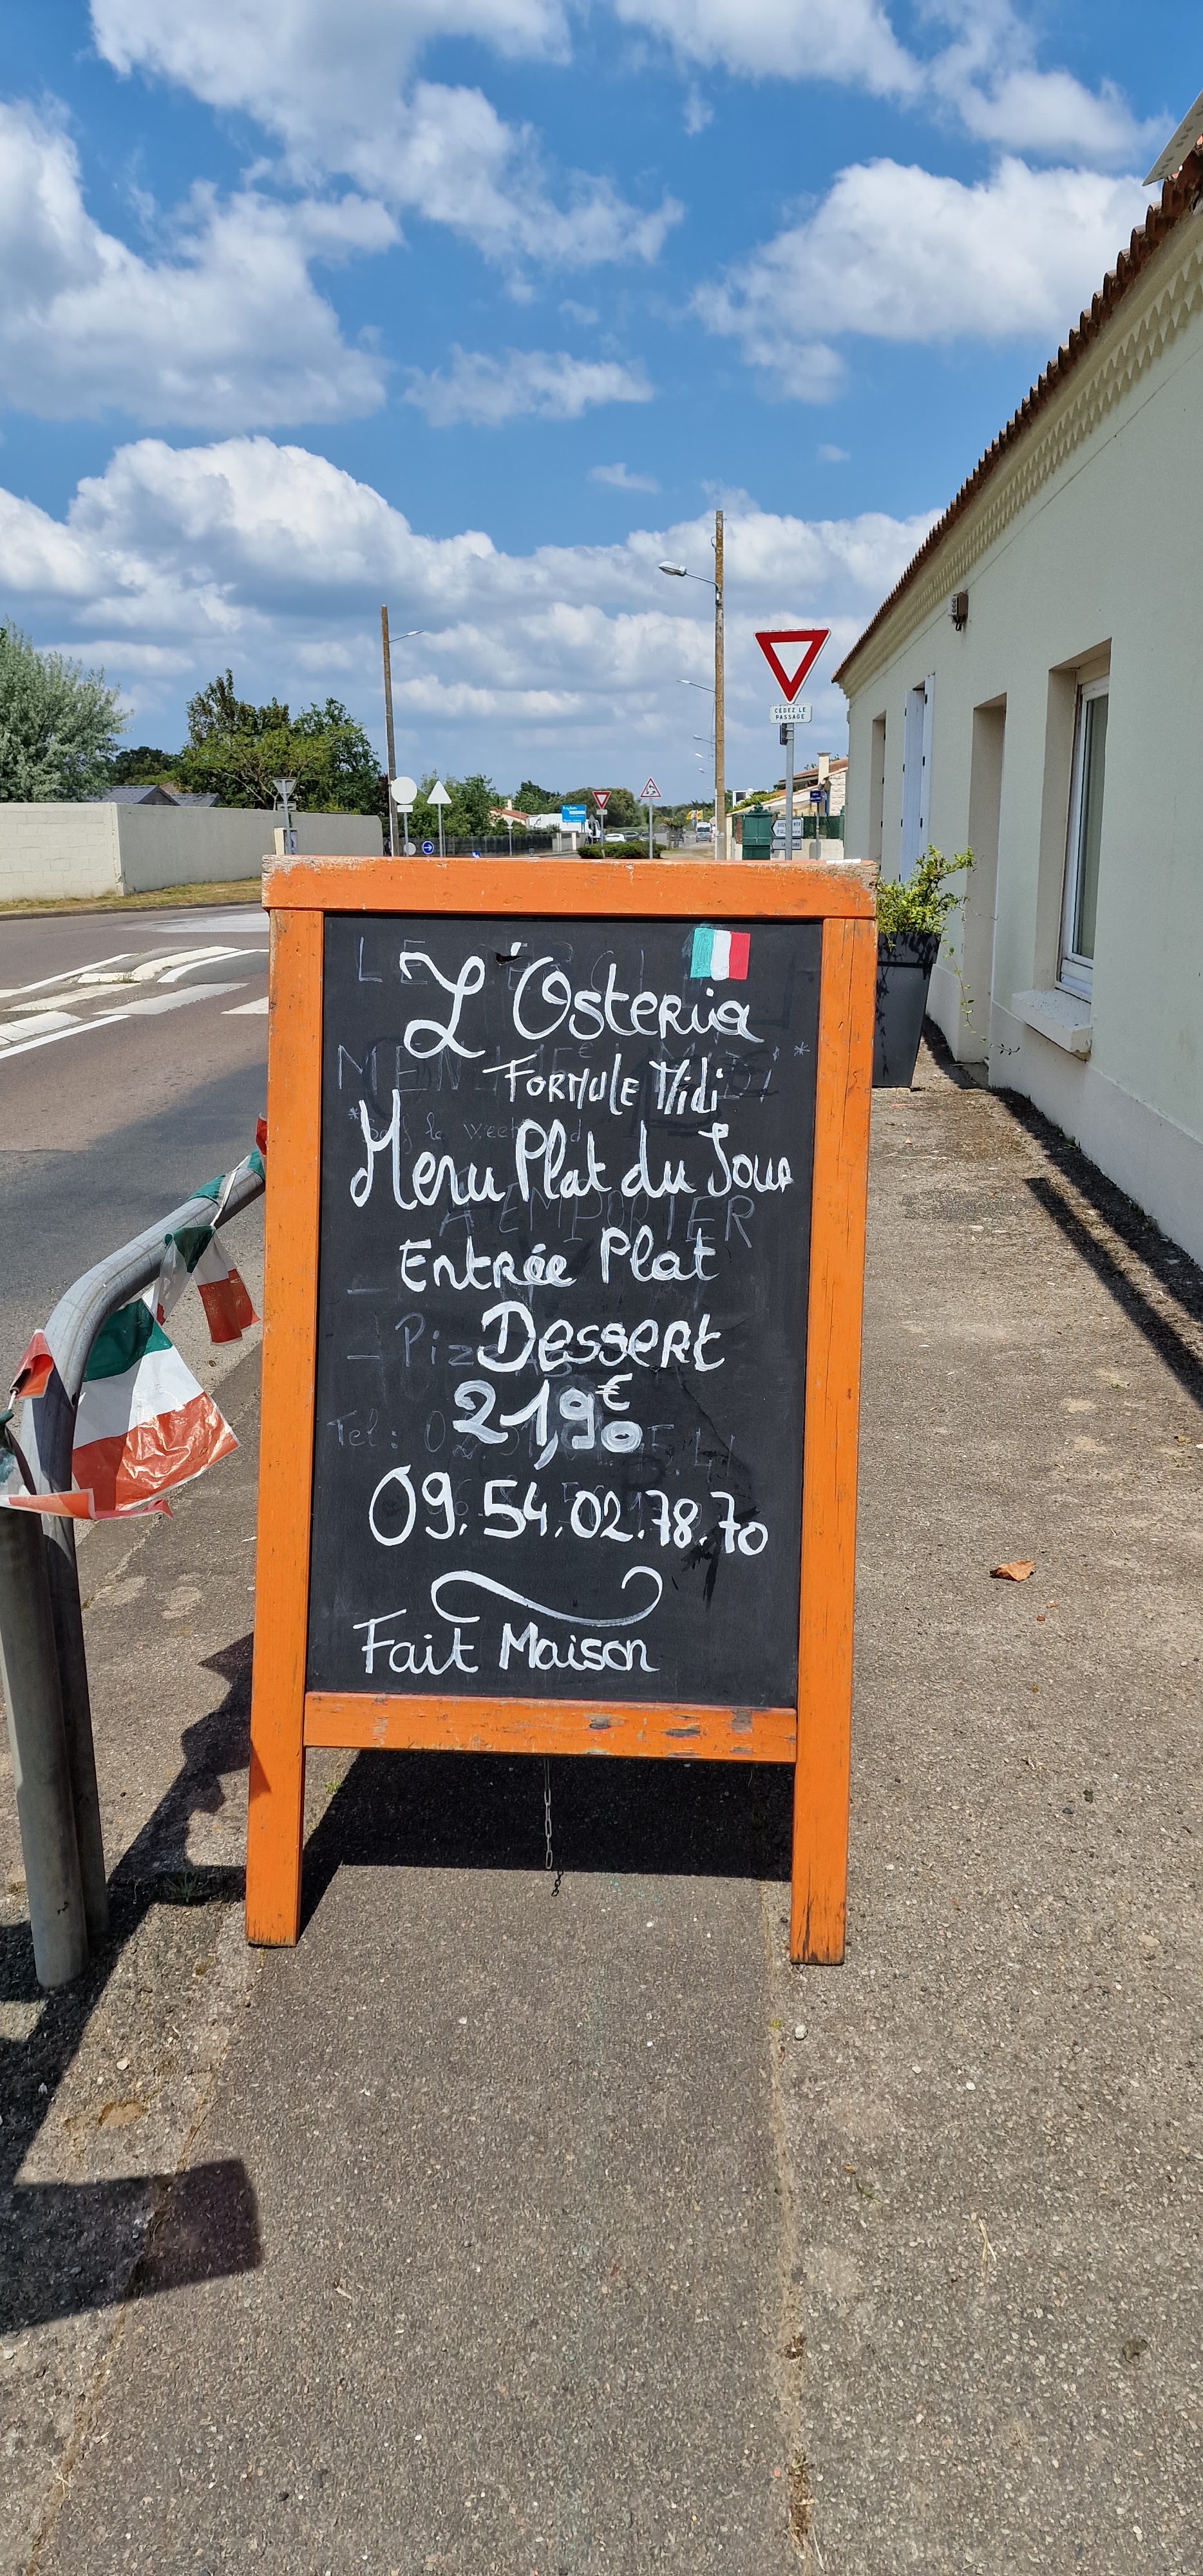 CÉDEZ LE
PASSAGE
L'Osteria
FORMULE Midi
Menu Plat du Jour
Entrée Plat
Dessert
21,90€
09.54.02.78.70
Fait Maison